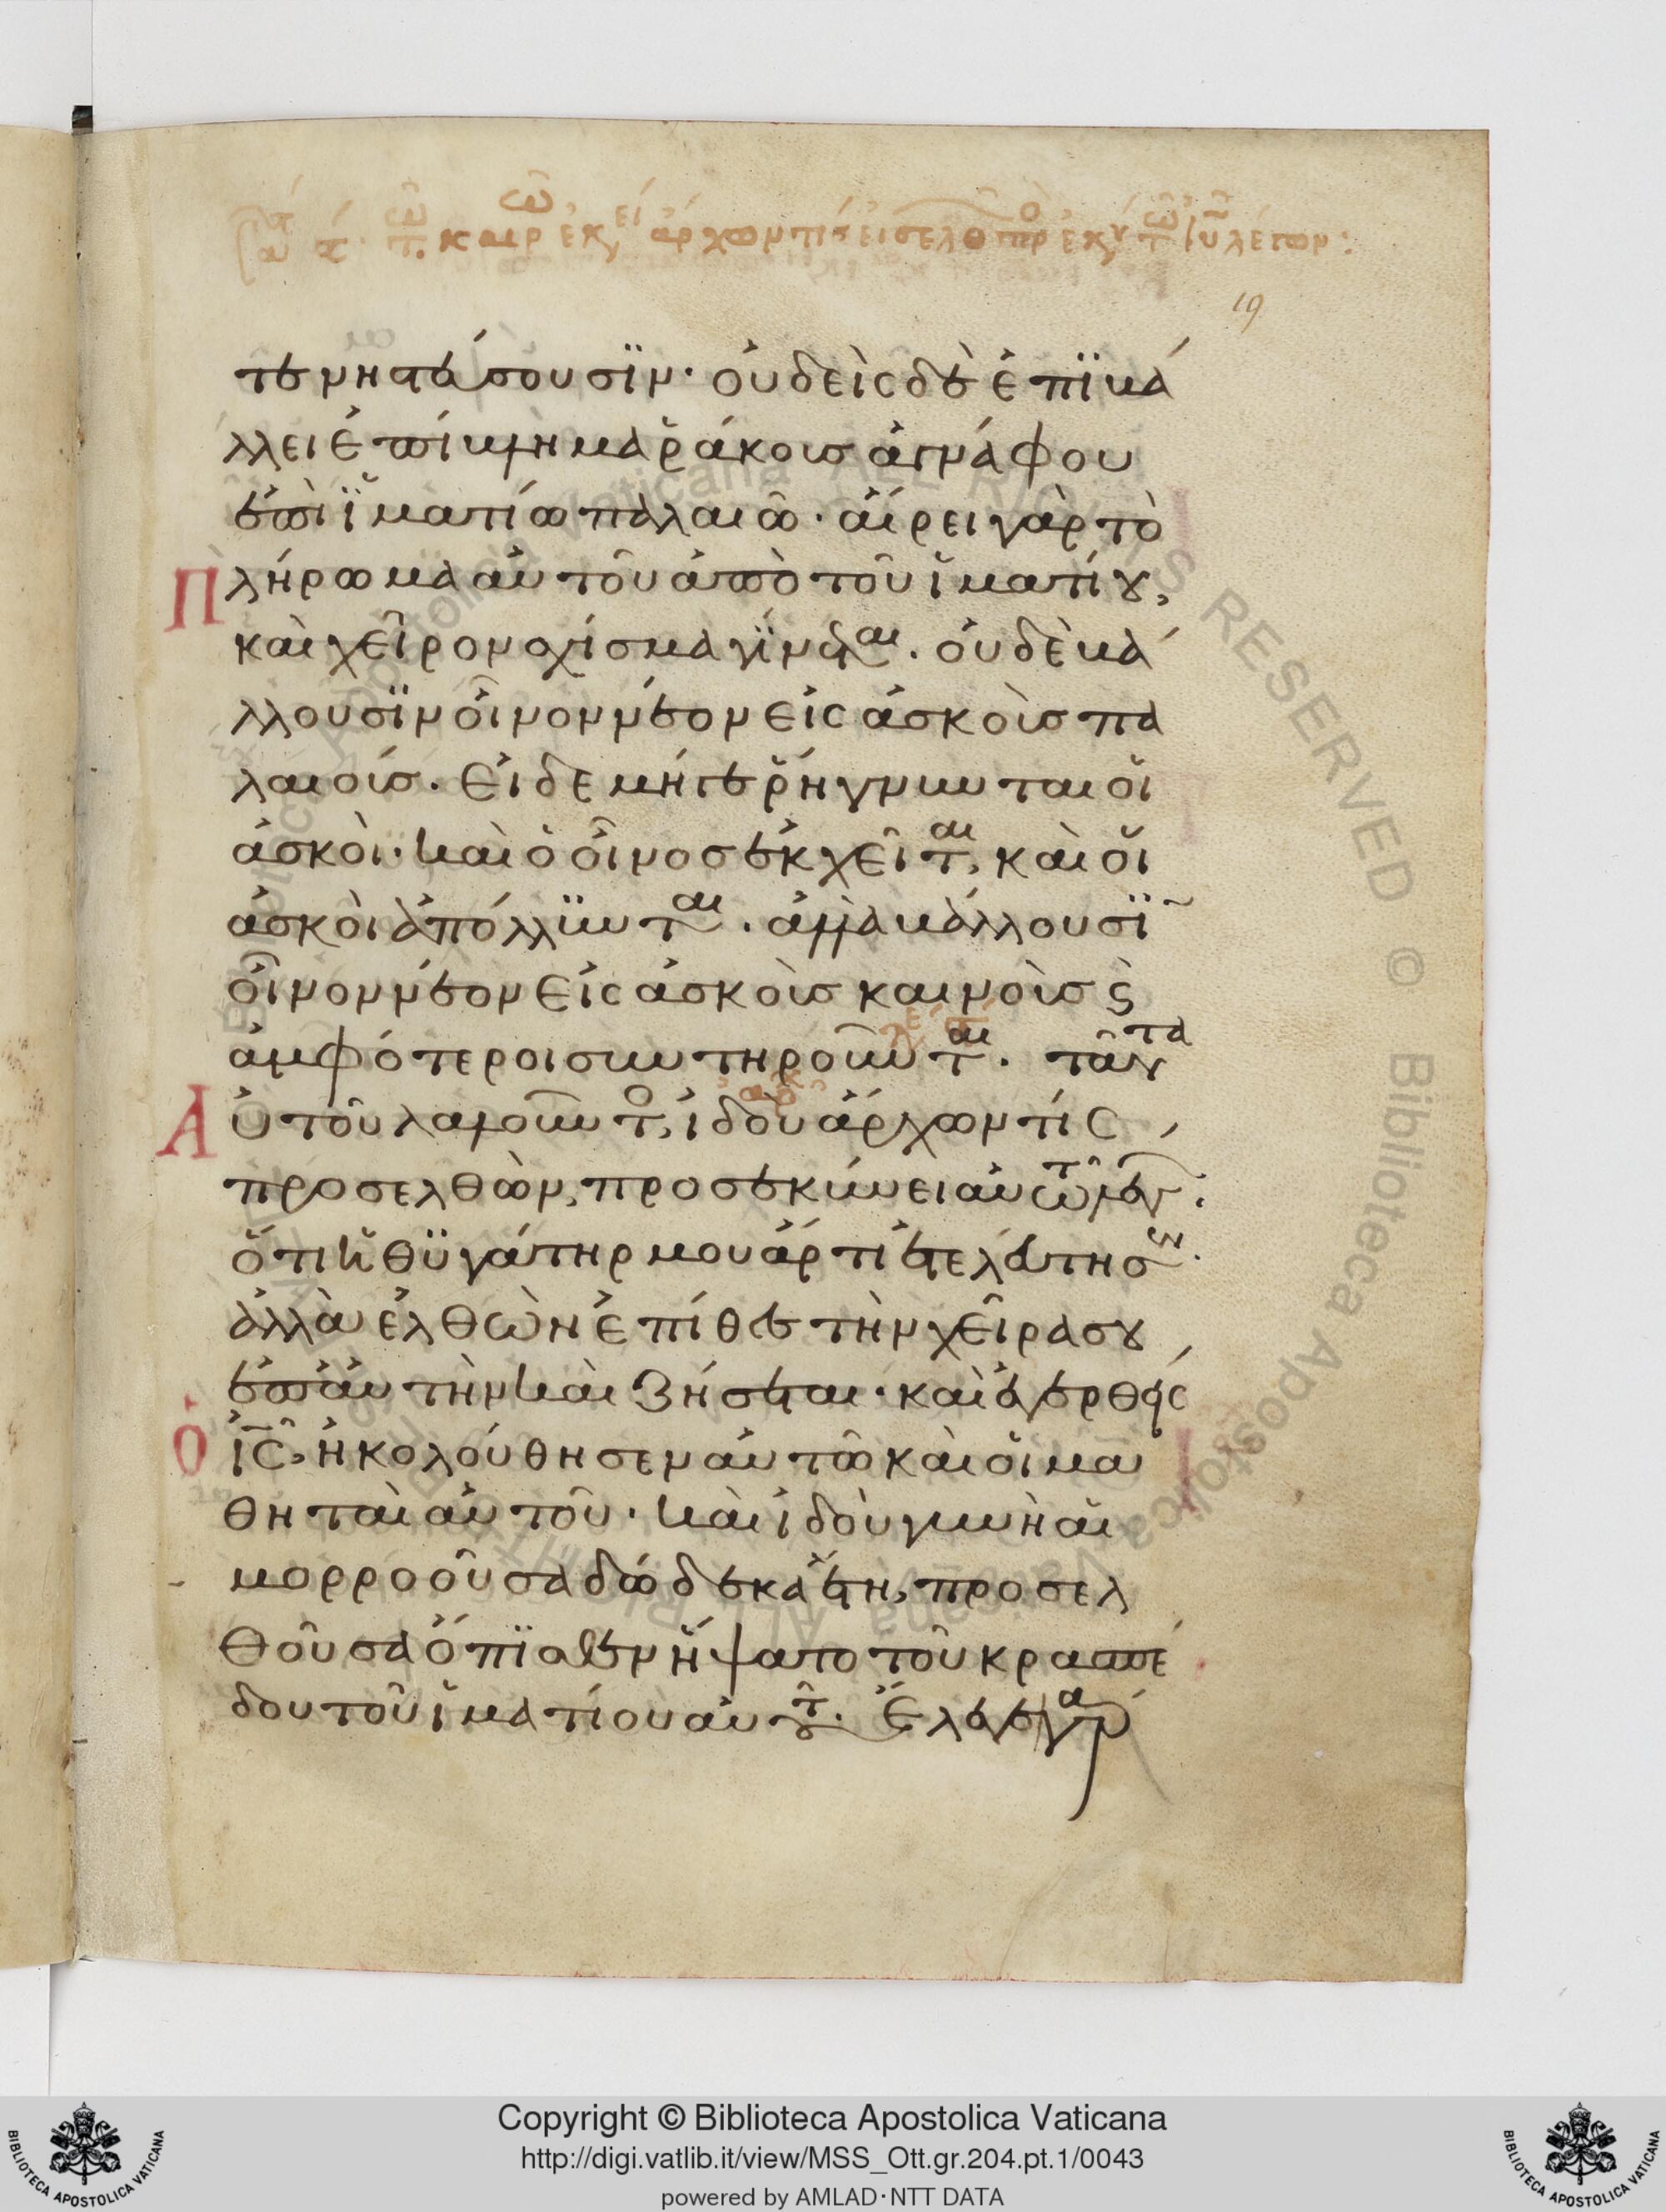 τε νηστεύσουσϊν· οὐδεὶς δὲ ἐπϊβά
λλει ἐπίβλημα ῥάκοις ἀγνάφου
ἐπὶ ἱματίω παλαιῶ· αἴρει γὰρ τὸ
Πλήρωμα αὐτοῦ ἀπὸ τοῦ ἱματίου,
καὶ χεῖρον σχίσμα γίνεται. οὐδὲ βά
λλουσϊν οἶνον νέον εἰς ἀσκοὶς πα
λαιοίς. εἰ δε μήγε ῥήγνυνται οἱ
ἀσκοὶ· καὶ ὁ οἶνος ἐκχεῖτ, καὶ οἱ
ἀσκοὶ ἀπόλλϋντ. ἀλλὰ βάλλουσϊ
οἶνον νέον εἰς ἀσκοὶς καινοὶς ϛ
ἀμφότεροι συντηροῦντ. ταῦτα
Αὐτοῦ λαλοῦντ, ἰδοὺ ἄρχων τίς
προσελθὼν, προσεκύνει αὐτῶ λέγ.
ὅτι ἡ θϋγάτηρ μου ἄρτι ἐτελεύτησεν.
ἀλλὰ ἐλθὼν ἐπίθες τὴν χεῖρα σου
ἐπ' αὐτὴν καὶ ζήσεται· καὶ ἐγερθεὶς
Ὁ ἰς, ἠκολούθησεν αὐτῶ καὶ οἱ μα
θηταὶ αὐτοῦ· καὶ ἰδοὺ γυνὴ αἱ
μορροοῦσα δώδεκα ἔτη, προσελ
θοῦσα ὄπϊσθεν ἥψατο τοῦ κρασπέ
δου τοῦ ἱματίου αὐτοῦ. ἔλεγε γὰρ
19
Copyright © Biblioteca Apostolica Vaticana
http://digi.vatlib.it/view/MSS_Ott.gr.204.pt.1/0043
powered by AMLAD·NTT DATA
BIBLIOTECA APOSTOLICA VATICANA
BIBLIOTECA APOSTOLICA VATICANA